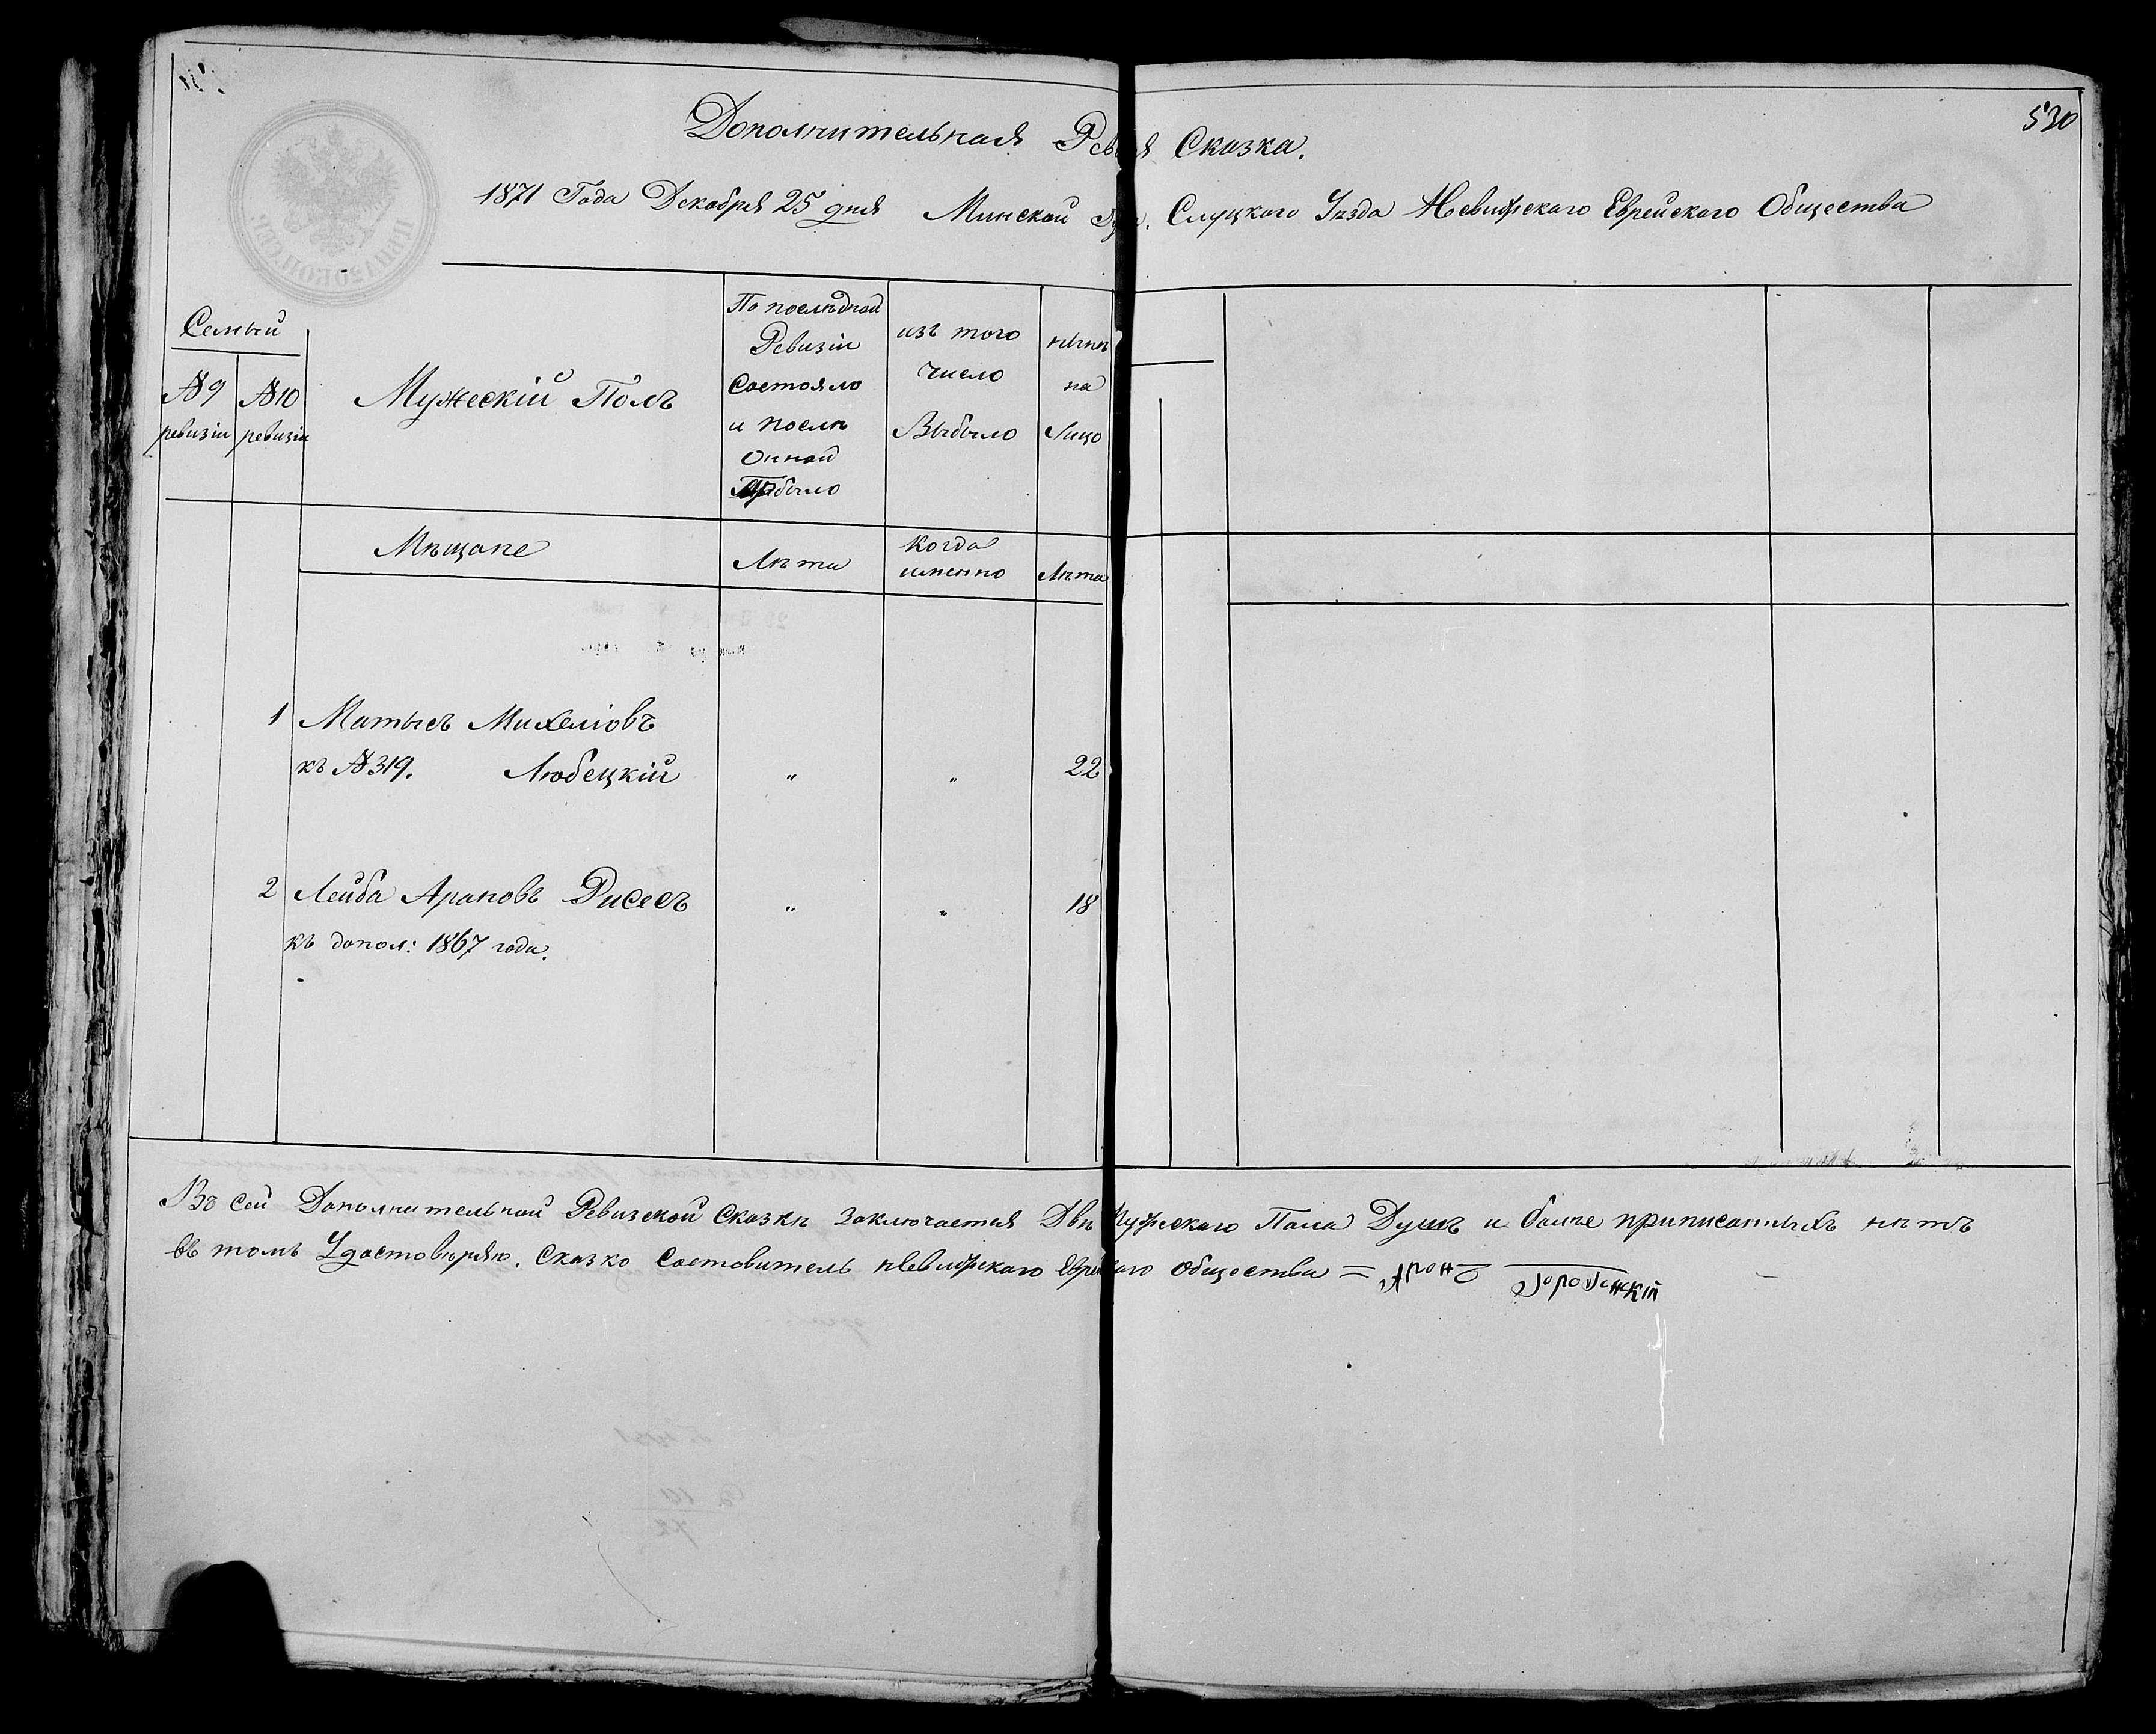 530
Дополнительная Рев я Сказка.
1871 Года Декабря 25 дня Минской Губ. Слуцкаго Уѣзда Несвижскаго Еврейскаго Общества
Семьи
№9 ревизіи
№10 ревизіи
Мужескій Полъ
По послѣдной
Ревизіи
Состояло
и послѣ
Онной
Прибыло
изъ того
Число
Выбыло
нынѣ
на
Лицо
Мѣщане
Лѣта
Когда
именно
Лѣта
1 Матысъ Михеліовъ
къ №319. Любецкій " " 22
2 Лейба Ароновъ Рисесъ " " 18
къ допол: 1867 года.
Въ сей Дополнительной Ревизской Сказкѣ Заключается Двѣ Мужескаго Пола Душъ и болѣе приписанныхъ нѣтъ
въ томъ Удостовѣряю. Сказко Состовитель Несвижскаго Еврейскаго общества =